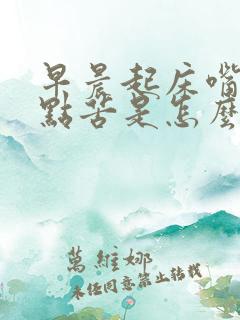 早晨起床嘴
點苦是怎麼
萬維娜
未經同意禁止轉載